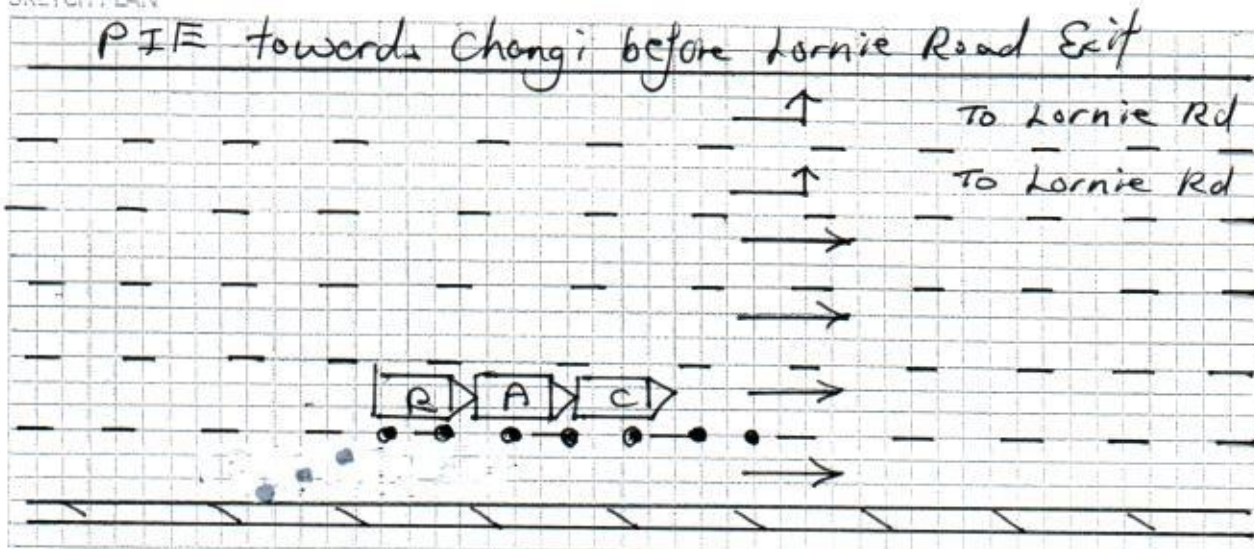 SKETCH PLAN
PIE towards Changi before Lornie Road Exit
To Lornie Rd
To Lornie Rd
R A C